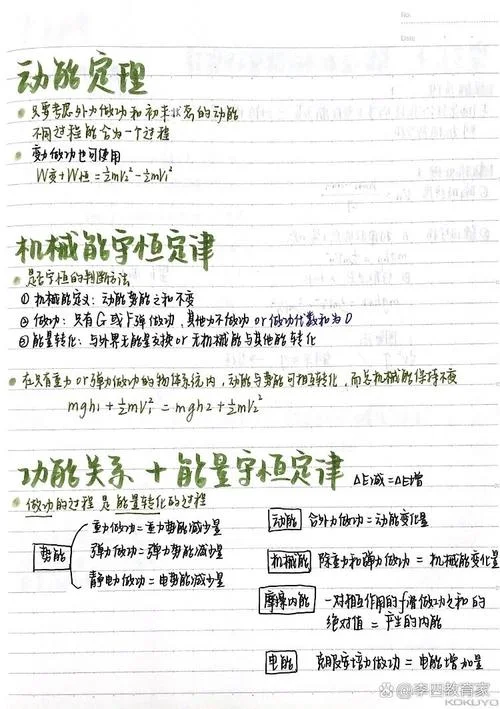 No.
Date
动能定理
只要考虑外力做功和初末状态的动能
不同过程能合为一个过程
变力做功也可使用
W变+W恒=½mV₂²-½mV₁²
机械能守恒定律
是否守恒的判断方法
① 机械能定义：动能势能之和不变
② 做功：只有G或F弹做功，其他力不做功or做功代数和为0
③ 能量转化：与外界无能量交换or无机械能与其他能转化
在只有重力or弹力做功的物体系统内，动能与势能可相互转化，而总机械能保持不变
mgh1+½mV₁²=mgh2+½mV₂²
功能关系+能量守恒定律 △E减=△E增
做功的过程是能量转化的过程
势能
重力做功=重力势能减少量
弹力做功=弹力势能减少量
静电力做功=电势能减少量
动能 合外力做功=动能变化量
机械能 除重力和弹力做功=机械能变化量
摩擦内能 一对相互作用的f滑做功之和的
绝对值=产生的内能
电能 克服安培力做功=电能增加量
百家号@李四教育家
KOKUYO